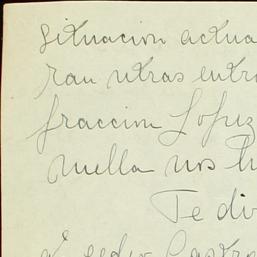 situacion actua
ran utras entr
fraccion Lopez
nuella nos h
Te di
a pedro Castro